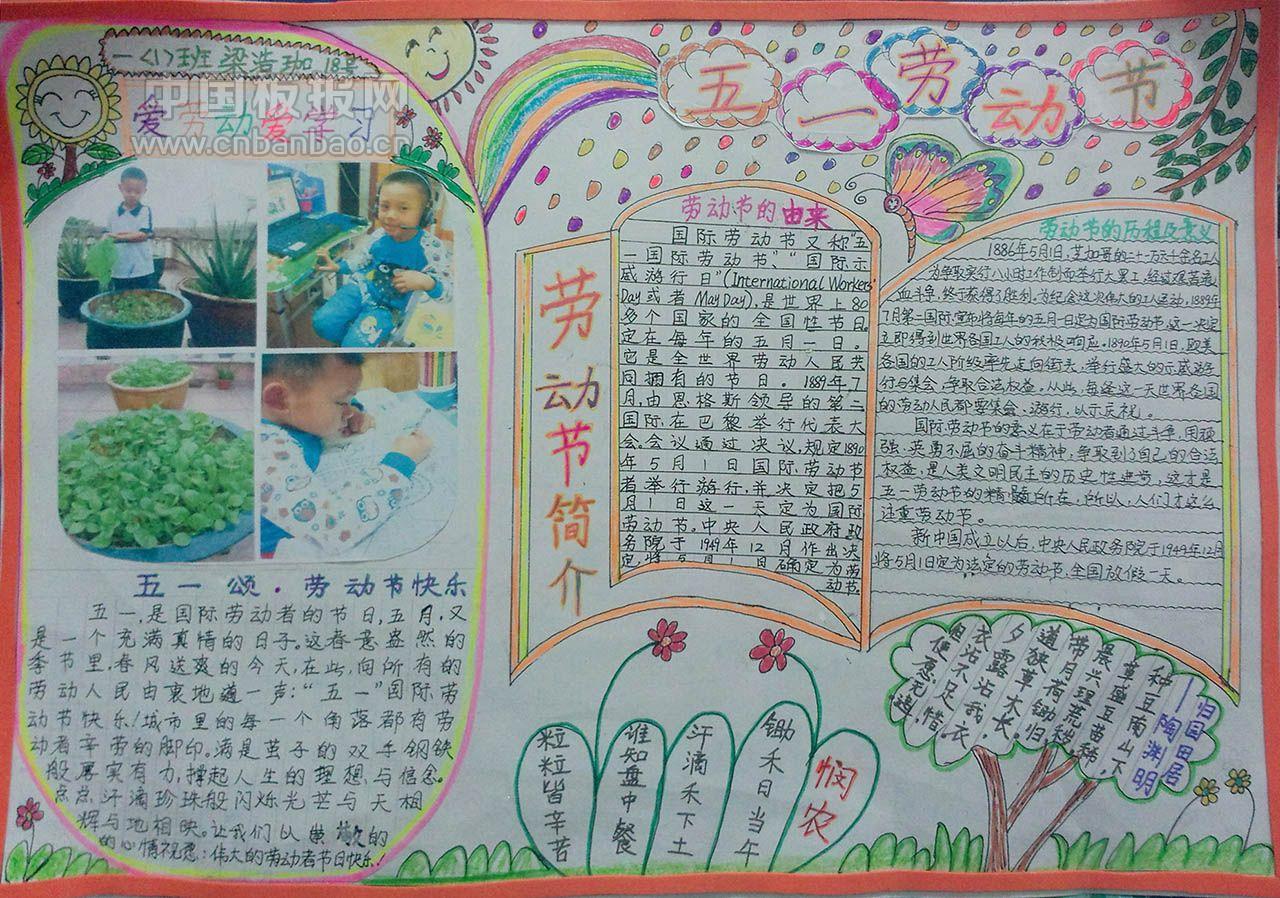 一〈1〉班 梁浩珈 18号
中国板报网
www.cnbanbao.cn
爱劳动爱学习
五一颂·劳动节快乐
五一,是国际劳动者的节日,五月,又
是一个充满真情的日子。这春意盎然的
季节里,春风送爽的今天,在此,向所有的
劳动人民由衷地道一声:“五一”国际劳
动节快乐!城市里的每一个角落都有劳
动者辛劳的脚印。满是茧子的双手钢铁
般厚实有力,撑起人生的理想与信念。
点点汗滴珍珠般闪烁光芒与天相
辉与地相映。让我们以崇敬的
的心情祝愿:伟大的劳动者节日快乐!
五一劳动节
劳动节简介
劳动节的由来
国际劳动节又称“五
一国际劳动节”、“国际示
威游行日”(International Workers'
Day或者May Day),是世界上80
多个国家的全国性节日。
定在每年的五月一日。
它是全世界劳动人民共
同拥有的节日。1889年7
月,由恩格斯领导的第二
国际在巴黎举行代表大
会。会议通过决议,规定1890
年5月1日国际劳动节
者举行游行,并决定把5
月1日这一天定为国际
劳动节。中央人民政府政
务院于1949年12月作出决
定,将5月1日确定为劳
动节。
劳动节的历程及意义
1886年5月1日,芝加哥的二十一万六千余名工人
为争取实行八小时工作制而举行大罢工,经过艰苦流
血斗争,终于获得了胜利。为纪念这次伟大的工人运动,1889年
7月第二国际宣布将每年的五月一日定为国际劳动节。这一决定
立即得到世界各国工人的积极响应。1890年5月1日,欧美
各国的工人阶级率先走向街头,举行盛大的示威游
行与集会,争取合法权益。从此,每逢这一天世界各国
的劳动人民都要集会、游行,以示庆祝。
国际劳动节的意义在于劳动者通过斗争,用顽
强、英勇不屈的奋斗精神,争取到了自己的合法
权益,是人类文明民主的历史性进步,这才是
五一劳动节的精髓所在,所以,人们才这么
注重劳动节。
新中国成立以后,中央人民政务院于1949年12月
将5月1日定为法定的劳动节,全国放假一天。
悯农
锄禾日当午
汗滴禾下土
谁知盘中餐
粒粒皆辛苦
归园田居
——陶渊明
种豆南山下
草盛豆苗稀,
晨兴理荒秽,
带月荷锄归。
道狭草木长,
夕露沾我衣
衣沾不足惜,
但使愿无违。